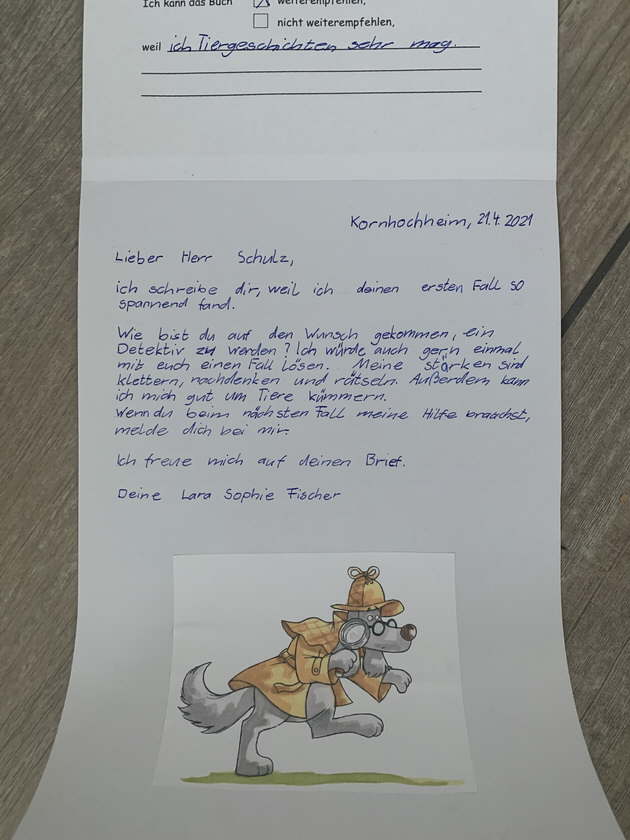 Ich kann das Buch weiterempfehlen,
nicht weiterempfehlen,
weil ich Tiergeschichten sehr mag.
Kornhochheim, 21.4.2021
Lieber Herr Schulz,
ich schreibe dir, weil ich deinen ersten Fall so
spannend fand.
Wie bist du auf den Wunsch gekommen, ein
Detektiv zu werden? Ich würde auch gern einmal
mit euch einen Fall lösen. Meine stärken sind
klettern, nachdenken und rätseln. Außerdem kann
ich mich gut um Tiere kümmern.
Wenn du beim nächsten Fall meine Hilfe brauchst,
melde dich bei mir.
Ich freue mich auf deinen Brief.
Deine Lara Sophie Fischer